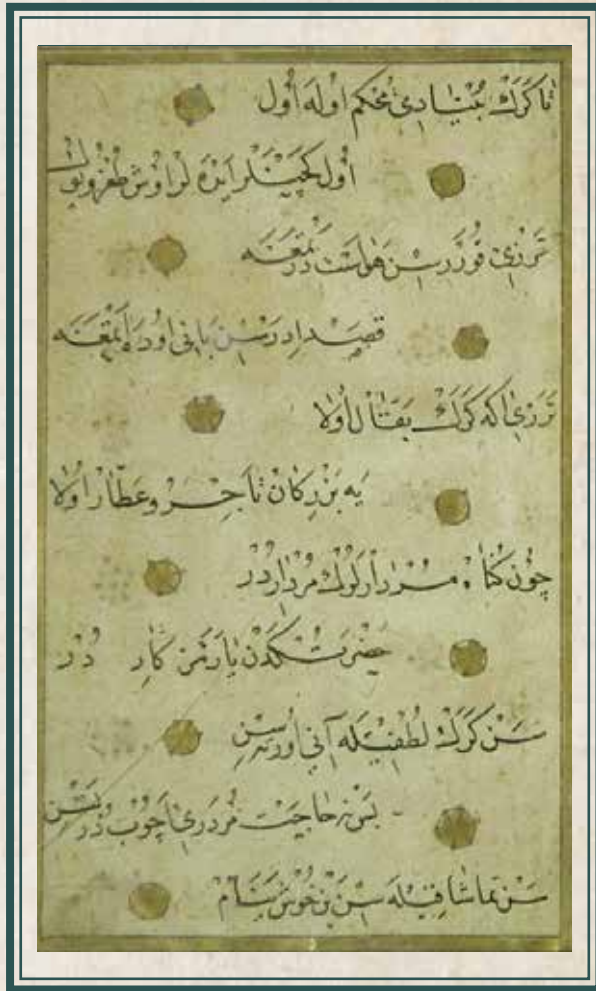 تاكرك بُنيادى محكم اوله اول
اول كچنلر ايده لر اوش طغرو يول
ترزى قوررسن هواست درتمغه
قصد ادرسن بانى اوده اتمغه
ترزى اكه كرك بقال اولا
يه بزركان تاجر و عطار اولا
چون كناه مردارلرك مرداردر
حضرتكدن يارمز كار در
سن كرك لطفيله آنى اورتسن
بس نه حاجت مردرى اچوب درتسن
سن تماشا قيله سن بن خوش ينام